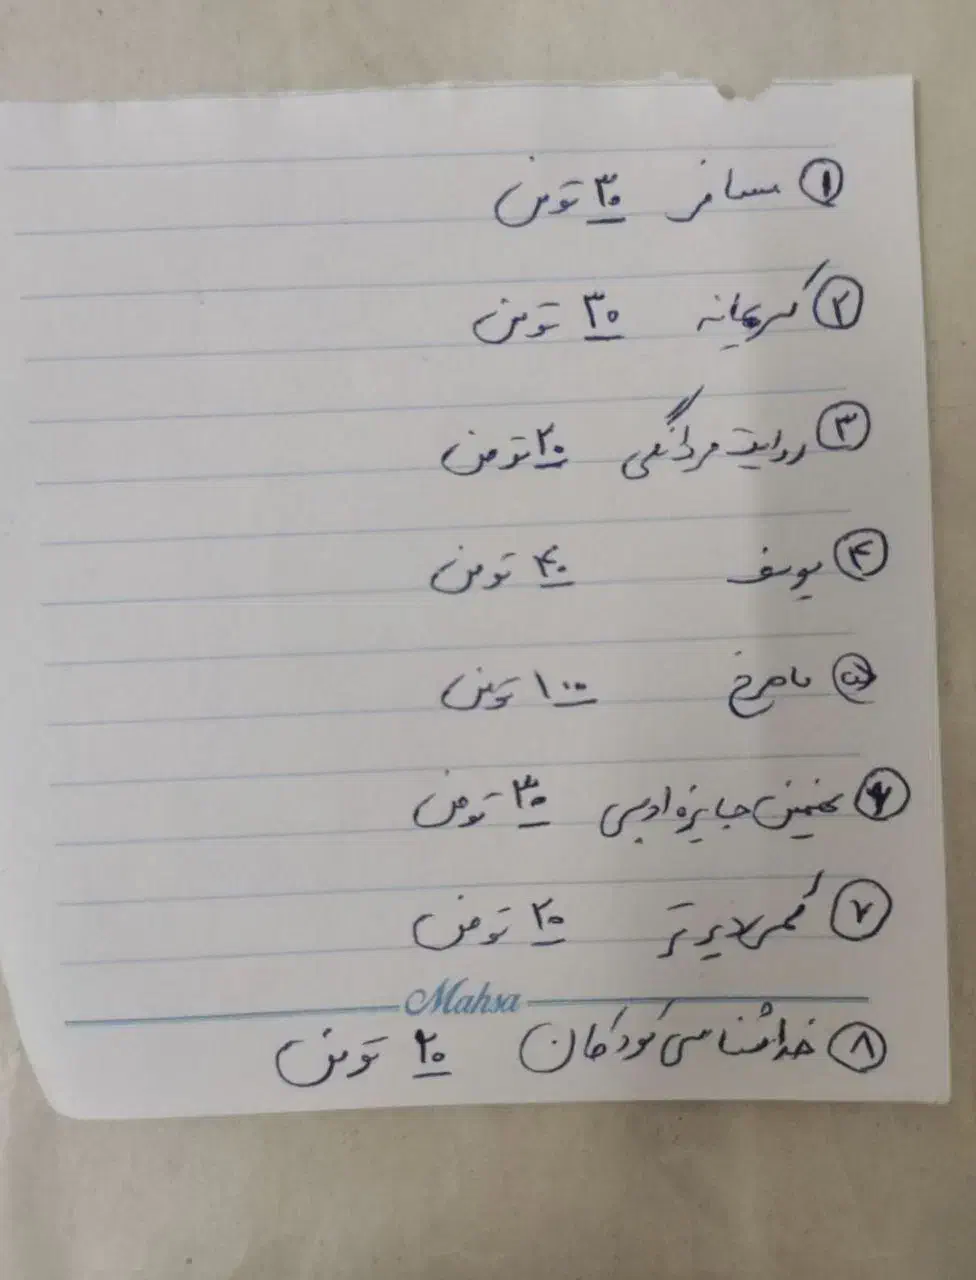 ۱ مسافر ۳۰ تومن
۲ کریمانه ۳۰ تومن
۳ روایت مردانگی ۲۰ تومن
۴ یوسف ۴۰ تومن
۵ ماهرخ ۱۰۰ تومن
۶ جایزه ادبی ۳۰ تومن
۷ ۲۰ تومن
Mahsa
۸ خداشناسی کودکان ۲۰ تومن